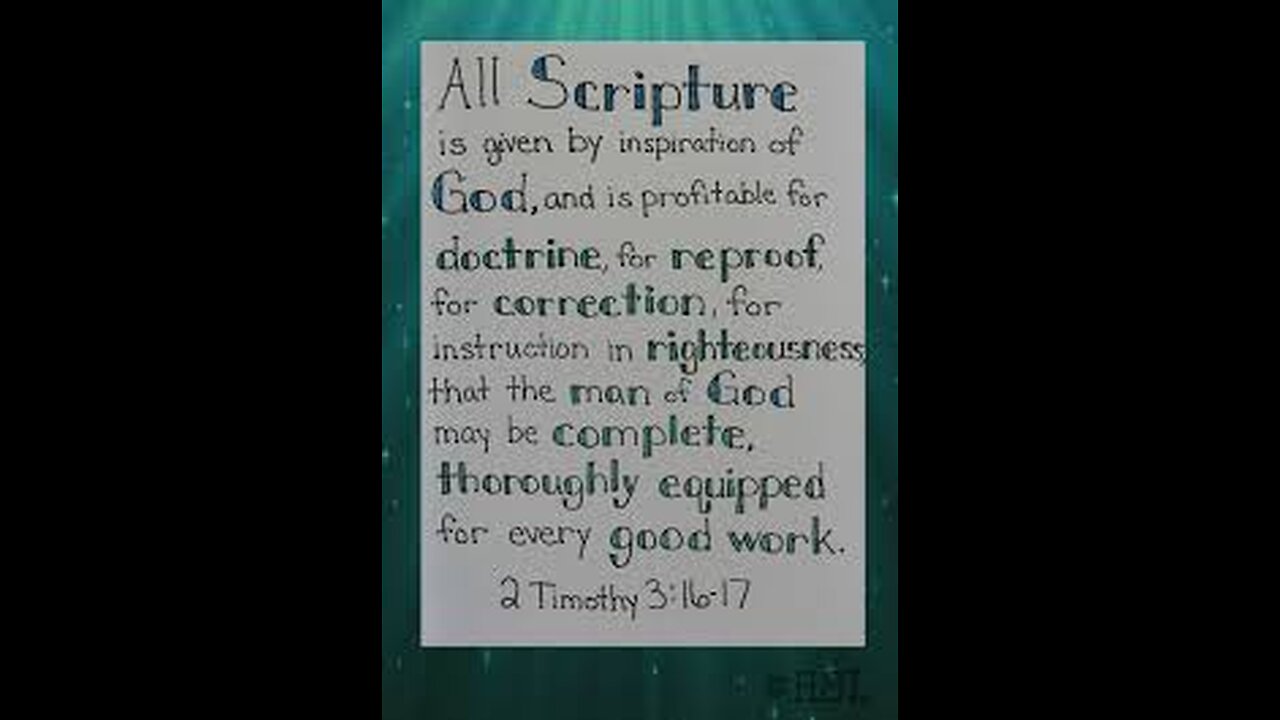 All Scripture
is given by inspiration of
God, and is profitable for
doctrine, for reproof,
for correction, for
instruction in righteousness,
that the man of God
may be complete,
thoroughly equipped
for every good work.
2 Timothy 3:16-17